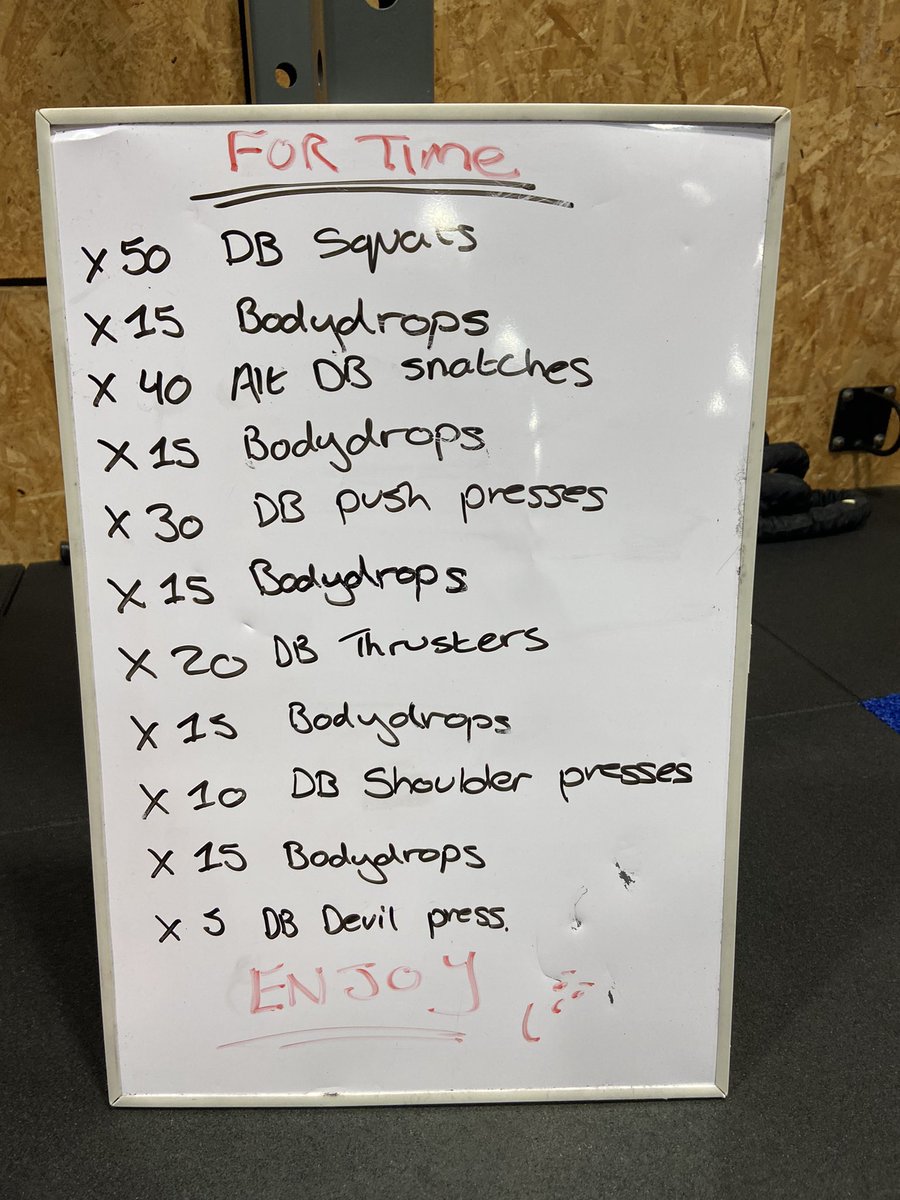 FOR TIME
X 50 DB Squats
X 15 Bodydrops
X 40 Alt DB snatches
X 15 Bodydrops
X 30 DB push presses
X 15 Bodydrops
X 20 DB Thrusters
X 15 Bodydrops
X 10 DB Shoulder presses
X 15 Bodydrops
X 5 DB Devil press.
ENJOY